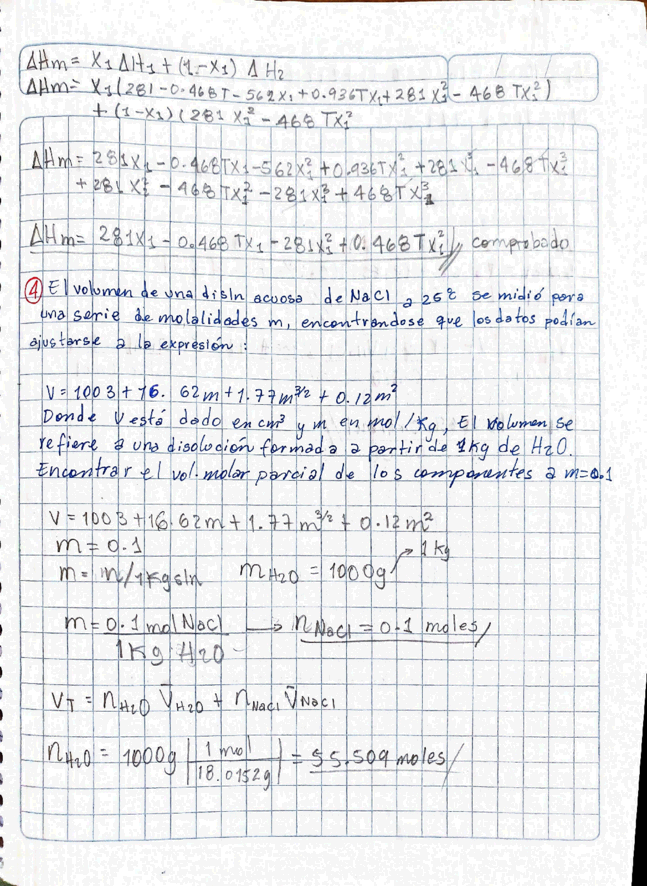 ΔHm = X1 ΔH1 + (1-X1) ΔH2
ΔHm = X1(281-0.468T-562X1+0.936TX1+281X1² - 468 TX1²)
+ (1-X1)(281X1² - 468TX1²
ΔHm = 281X1 - 0.468TX1 - 562X1² + 0.936TX1² + 281X1³ - 468TX1³
+ 281X1² - 468TX1² - 281X1³ + 468TX1³
ΔHm = 281X1 - 0.468TX1 - 281X1² + 0.468TX1² // comprobado
④ El volumen de una disln acuosa de NaCl a 25°C se midió para
una serie de molalidades m, encontrandose que los datos podían
ajustarse a la expresión :
V = 1003 + 16. 62m + 1.77m^3/2 + 0.12m²
Donde V está dado en cm³ y m en mol/Kg, El volumen se
refiere a una disolución formada a partir de 1Kg de H2O.
Encontrar el vol. molar parcial de los componentes a m=0.1
V = 1003 + 16.62m + 1.77m^3/2 + 0.12m²
m = 0.1 → 1 Kg
m = n/1Kgsln mH2O = 1000g
m = 0.1 mol NaCl → nNaCl = 0.1 moles/
1Kg H2O
VT = nH2O V̄H2O + nNaCl V̄NaCl
nH2O = 1000g | 1 mol | = 55.509 moles/
18.0152g